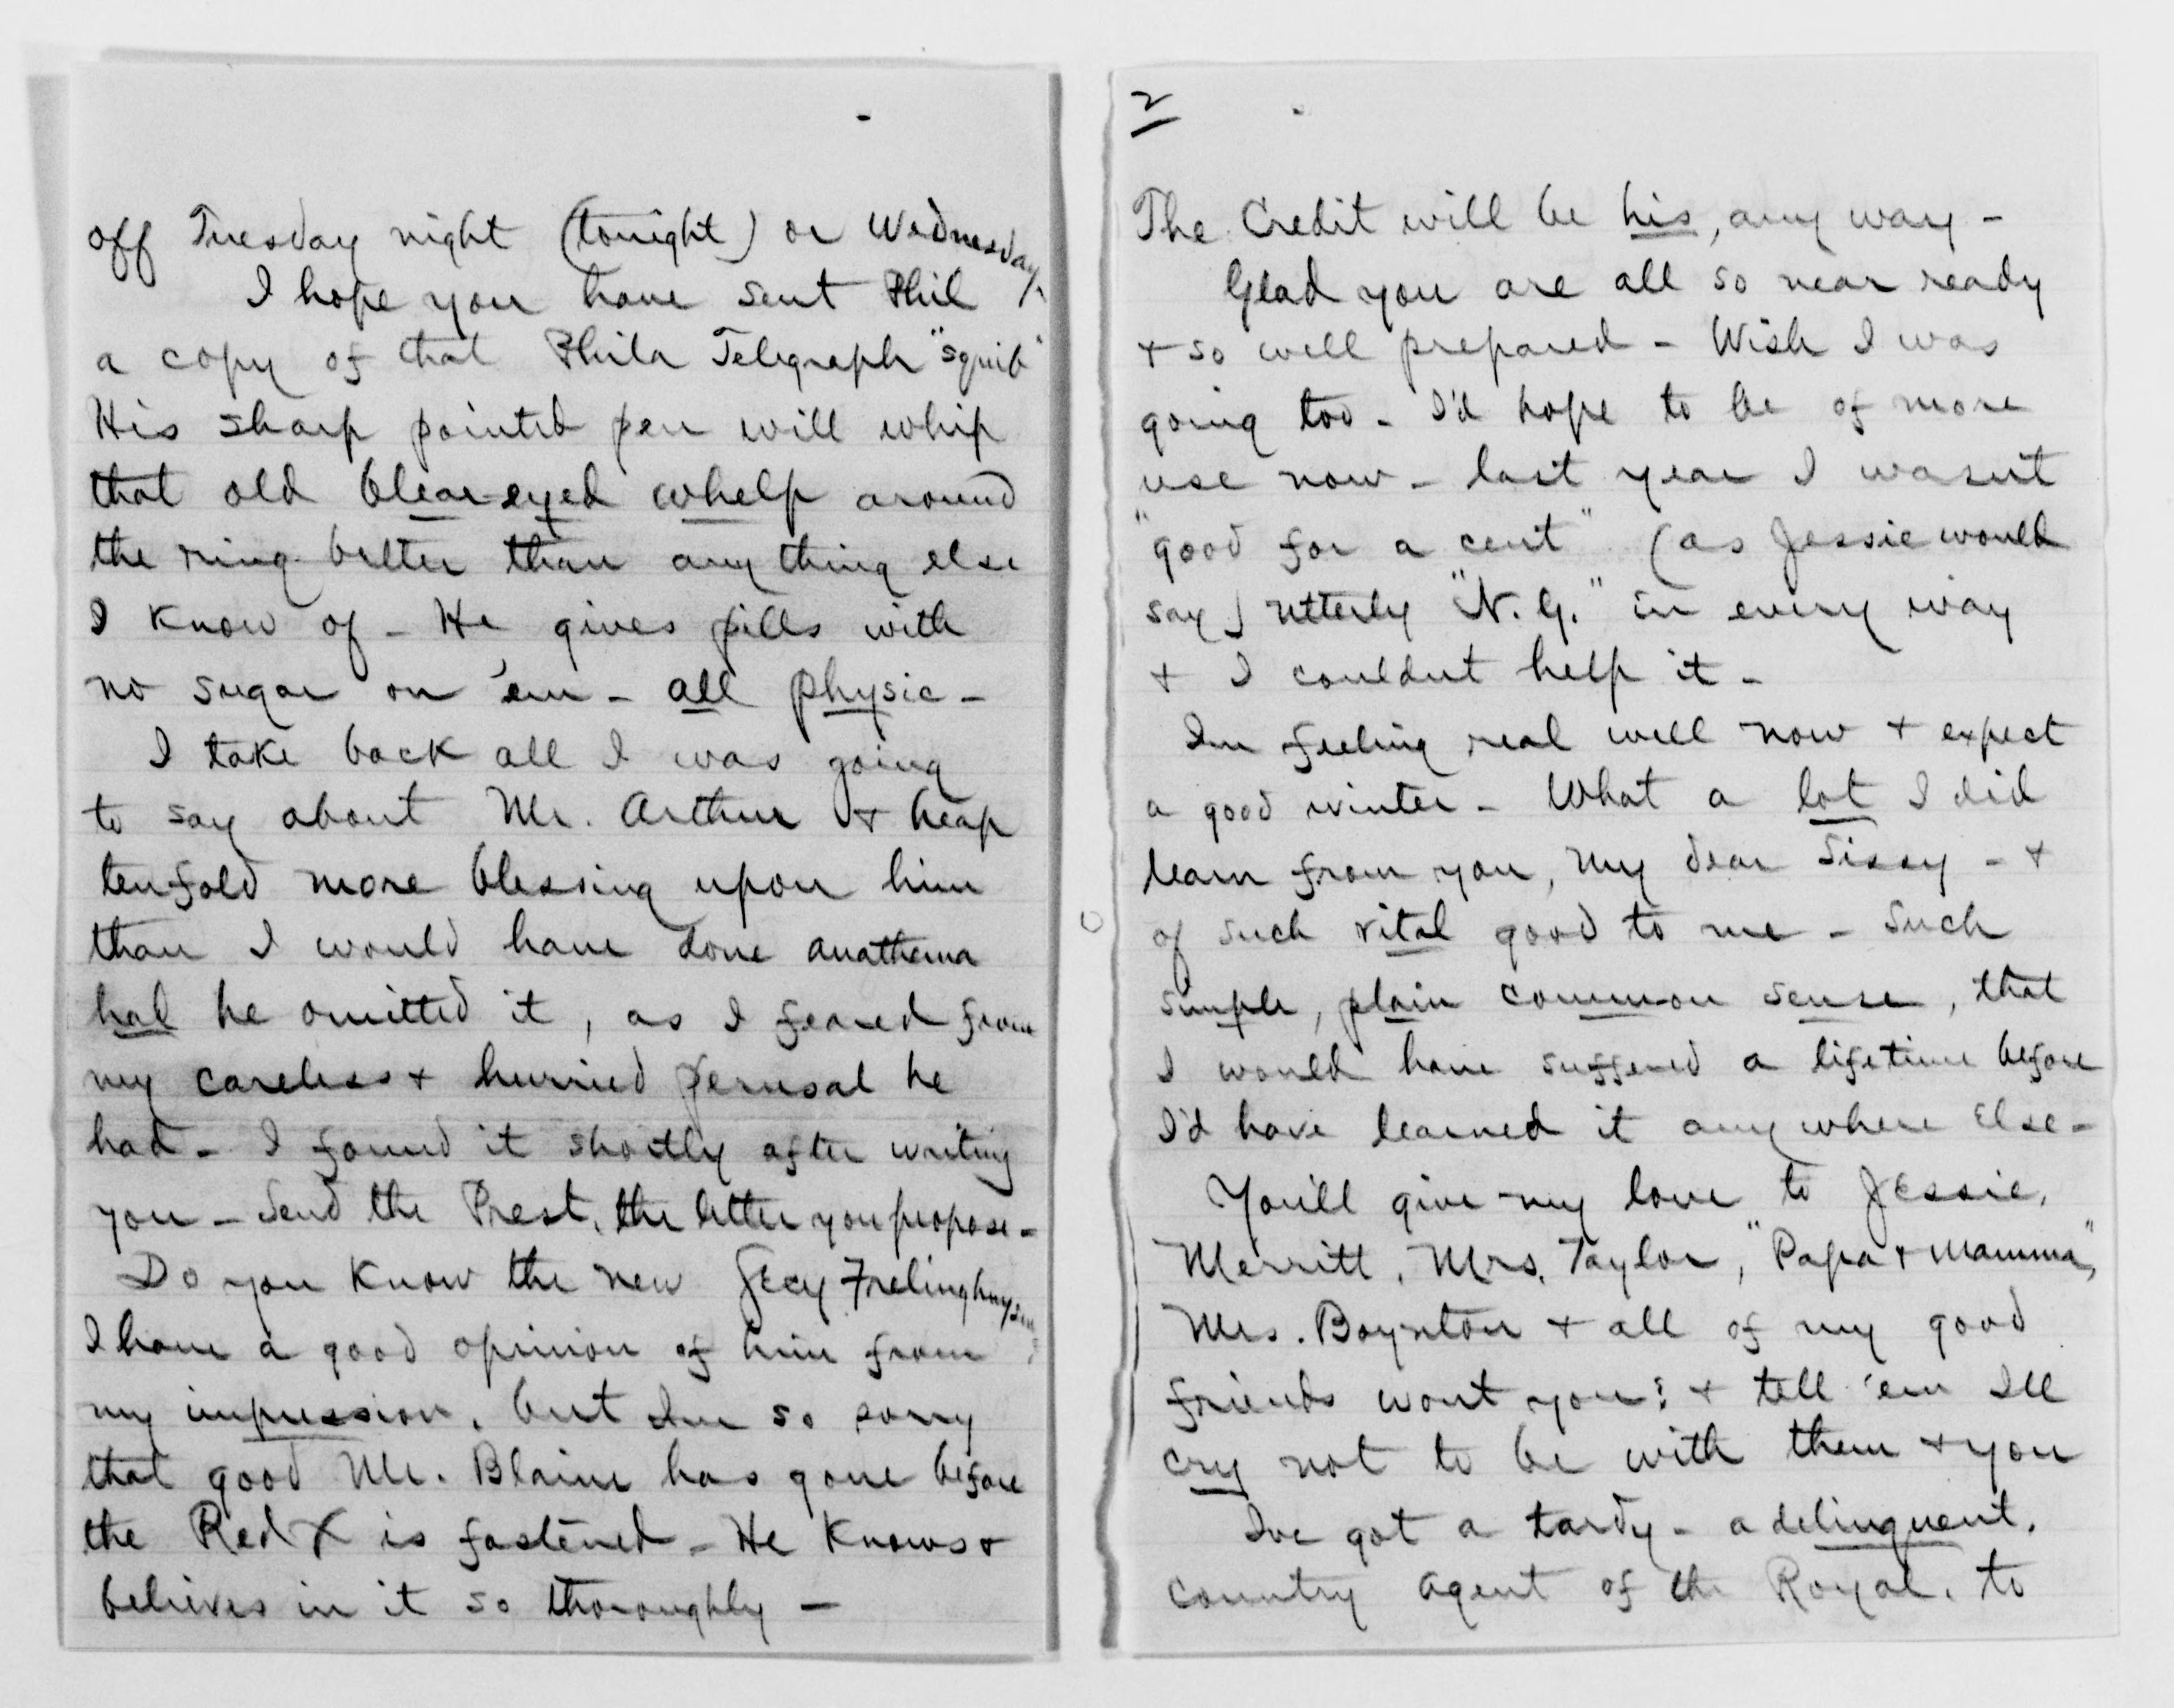 off Tuesday night (tonight) or Wednesday.
I hope you have sent Phil
a copy of that Phila Telegraph "squib"
His sharp pointed pen will whip
that old blear-eyed whelp around
the ring better than any thing else
I know of - He gives pills with
no sugar on 'em - all physic -
I take back all I was going
to say about Mr. Arthur & heap
tenfold more blessing upon him
than I would have done anathema
had he omitted it, as I feared from
my careless & hurried perusal he
had - I found it shortly after writing
you - Send the Prest. the letter you propose -
Do you know the new Secy Frelinghuysen?
I have a good opinion of him from
my impression, but Im so sorry
that good Mr. Blaine has gone before
the Red X is fastened - He knows &
believes in it so thoroughly -
2
The Credit will be his, any way -
Glad you are all so near ready
& so well prepared - Wish I was
going too - I'd hope to be of more
use now - last year I wasnt
"good for a cent" (as Jessie would
say) utterly "N.G." in every way
& I couldnt help it -
Im feeling real well now & expect
a good winter - What a lot I did
learn from you, my dear Sissy - &
of such vital good to me - Such
simple, plain common sense, that
I would have suffered a lifetime before
I'd have learned it any where Else -
You'll give my love to Jessie,
Merritt, Mrs. Taylor, "Papa & Mamma",
Mrs. Boynton & all of my good
friends wont you? & tell 'em Ill
cry not to be with them & you
Ive got a tardy - a delinquent,
country agent of the Royal, to